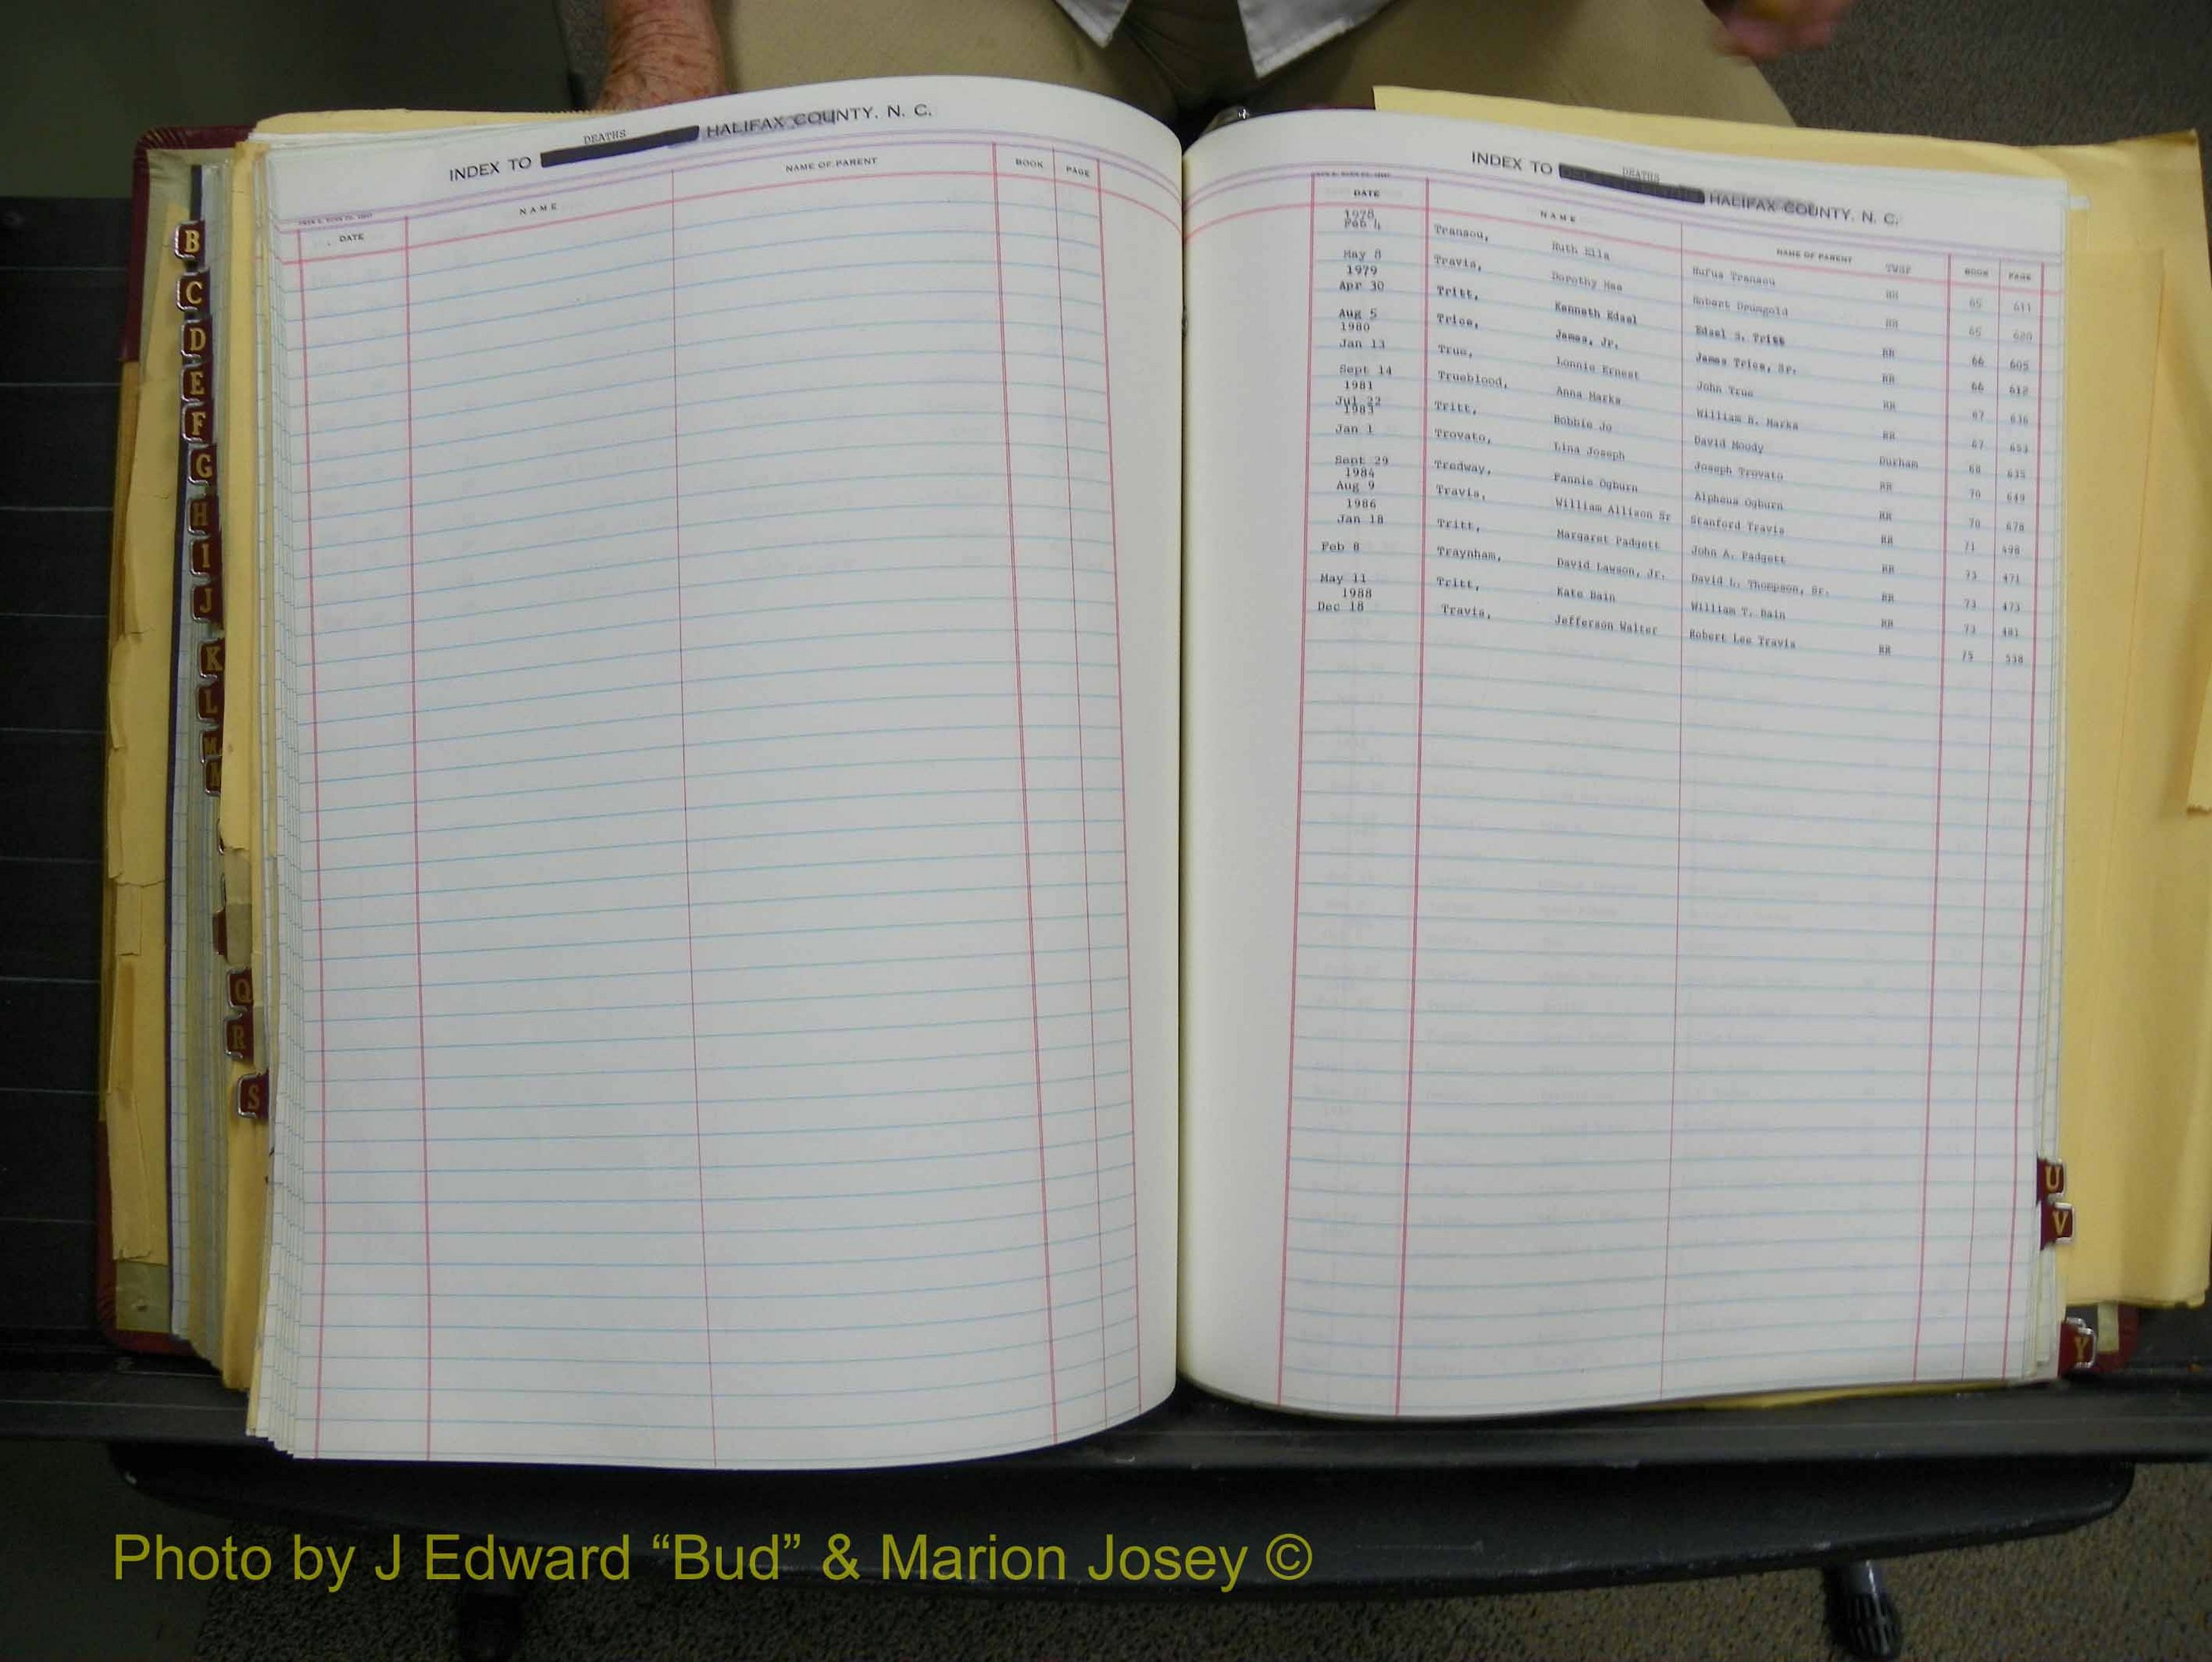 INDEX TO DEATHS HALIFAX COUNTY, N. C.
DATE NAME NAME OF PARENT BOOK PAGE
INDEX TO DEATHS HALIFAX COUNTY, N. C.
DATE NAME NAME OF PARENT TWSP BOOK PAGE
1978
Feb 4 Transou, Ruth Ella Rufus Transou RR 65 611
May 8 Travis, Dorothy Mae Robert Drumgold RR 65 620
1979
Apr 30 Tritt, Kenneth Edsel Edsel S. Tritt RR 66 605
Aug 5 Trice, James, Jr. James Trice, Sr. RR 66 612
1980
Jan 13 True, Lonnie Ernest John True RR 67 636
Sept 14 Trueblood, Anna Marks William B. Marks RR 67 653
1981
Jul 22 Tritt, Bobbie Jo David Moody Durham 68 635
1983
Jan 1 Trovato, Lina Joseph Joseph Trovato RR 70 649
Sept 29 Tredway, Fannie Ogburn Alpheus Ogburn RR 70 678
1984
Aug 9 Travis, William Allison Sr Stanford Travis RR 71 498
1986
Jan 18 Tritt, Margaret Padgett John A. Padgett RR 73 471
Feb 8 Traynham, David Lawson, Jr. David L. Thompson, Sr. RR 73 473
May 11 Tritt, Kate Bain William T. Bain RR 73 481
1988
Dec 18 Travis, Jefferson Walter Robert Lee Travis RR 75 538
B
C
D
E
F
G
H
I
J
K
L
M
N
Q
R
S
U
V
Y
Photo by J Edward “Bud” & Marion Josey ©